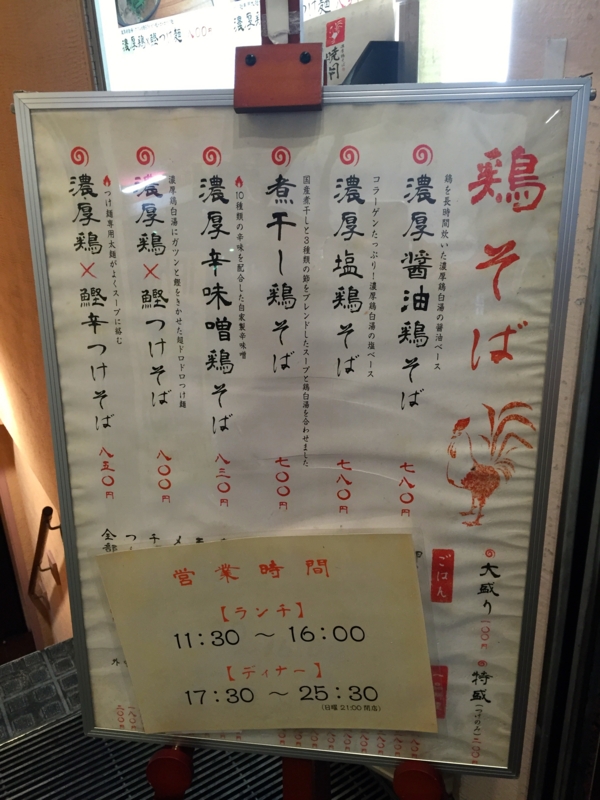 濃厚鶏×鰹つけ麺
暁月
鶏そば
鶏を長時間炊いた濃厚鶏白湯の醤油ベース
濃厚醤油鶏そば 七八〇円
コラーゲンたっぷり!濃厚鶏白湯の塩ベース
濃厚塩鶏そば 七八〇円
国産煮干しと3種類の節をブレンドしたスープと鶏白湯を合わせました
煮干し鶏そば 七〇〇円
10種類の辛味を配合した自家製辛味噌
濃厚辛味噌鶏そば 八三〇円
濃厚鶏白湯にガツンと鰹をきかせた麺ドロドロつけ麺
濃厚鶏×鰹つけそば 八〇〇円
つけ麺専用太麺がよくスープに絡む
濃厚鶏×鰹辛つけそば 八五〇円
大盛り 一〇〇円
特盛
ごはん
全部
営業時間
【ランチ】
11:30 〜 16:00
【ディナー】
17:30 〜 25:30
(日曜 21:00 閉店)